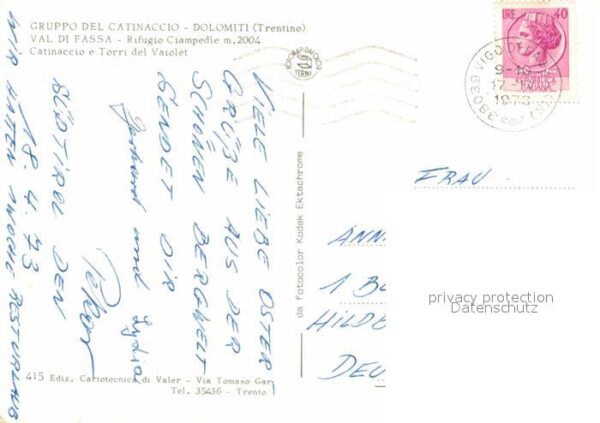 GRUPPO DEL CATINACCIO - DOLOMITI (Trentino)
VAL DI FASSA - Rifugio Ciampedìe m. 2004
Catinaccio e Torri del Vaiolet
VIELE LIEBE OSTER
GRÜßE AUS DER
SCHÖNEN BERGWELT
SENDET DIR
und Lydia
Peter
SÜDTIROL DEN
18. 4. 73
WIR HATTEN 1 WOCHE RESTURLAUB
da fotocolor Kodak Ektachrome
415 Ediz. Cartotecnica di Valer - Via Tomaso Gar
Tel. 35436 - Trento
TERNI
LIRE 40
REPUBBLICA
ITALIANA
38039 VIGO DI FA
9-10
17-
1973
FRAU
ANN
1 B
HILDE
DEU
privacy protection
Datenschutz